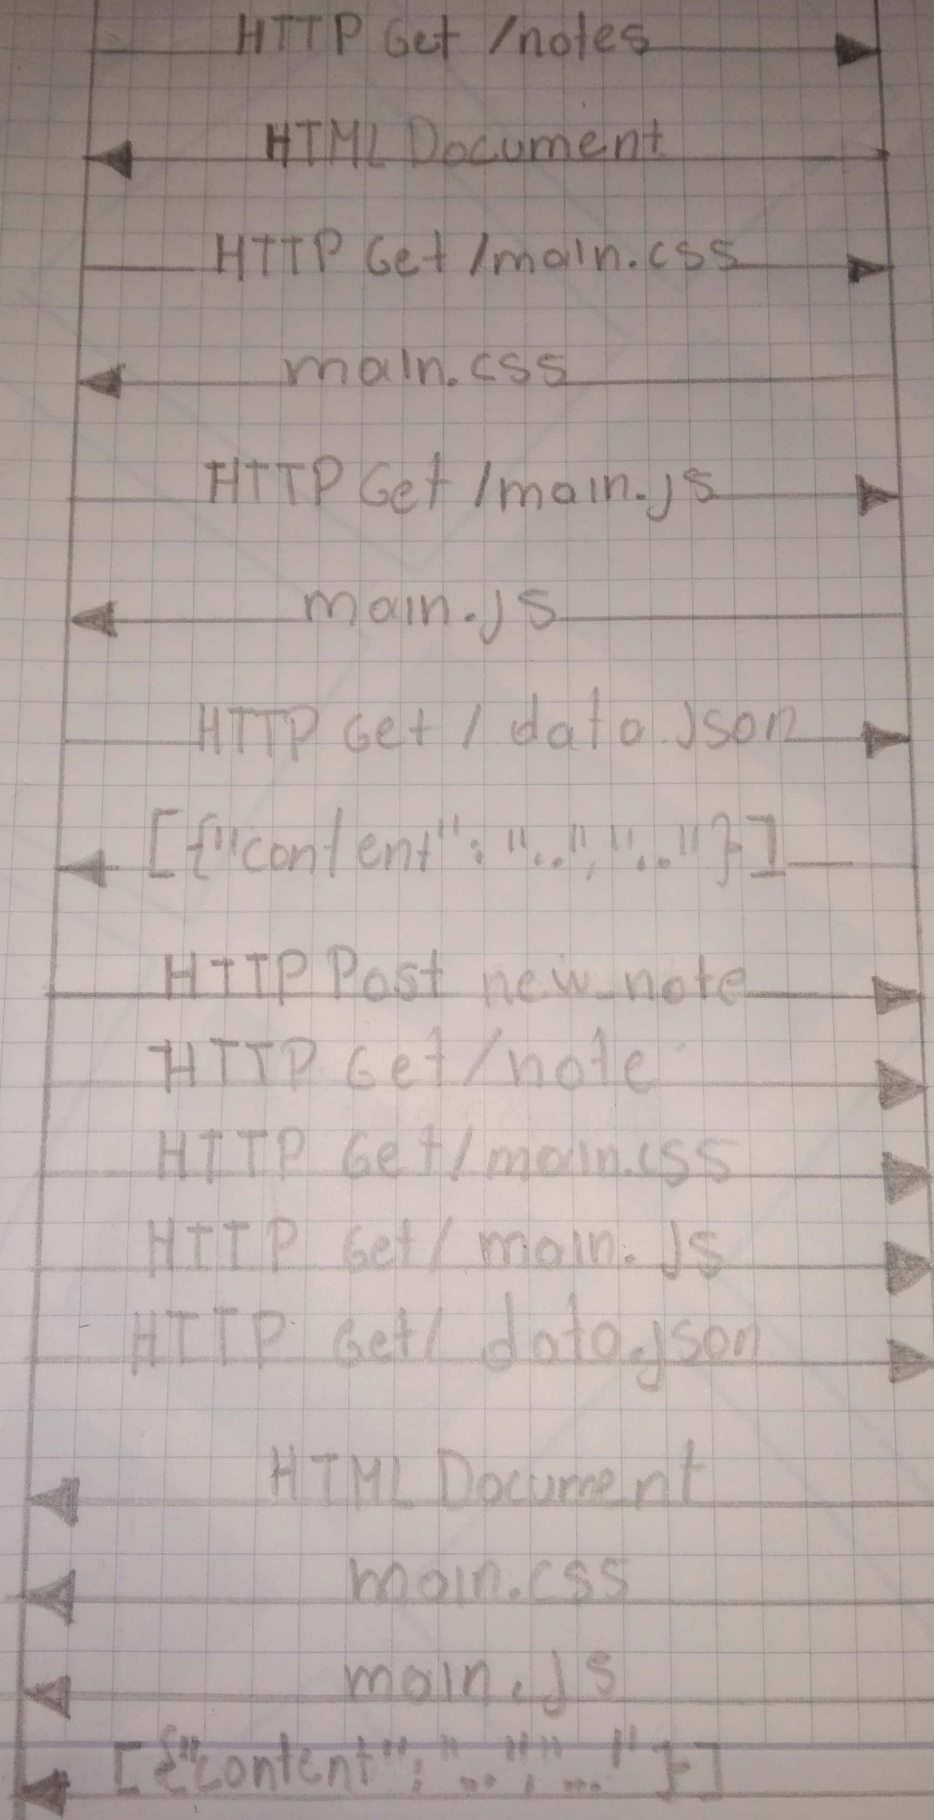 HTTP Get /notes
HTML Document
HTTP Get /main.css
main.css
HTTP Get /main.js
main.js
HTTP Get / data.json
[{"content": "..", ".."}]
HTTP Post new_note
HTTP Get /note
HTTP Get / main.css
HTTP Get / main.js
HTTP Get / data.json
HTML Document
main.css
main.js
[{"content": "..", "..."}]